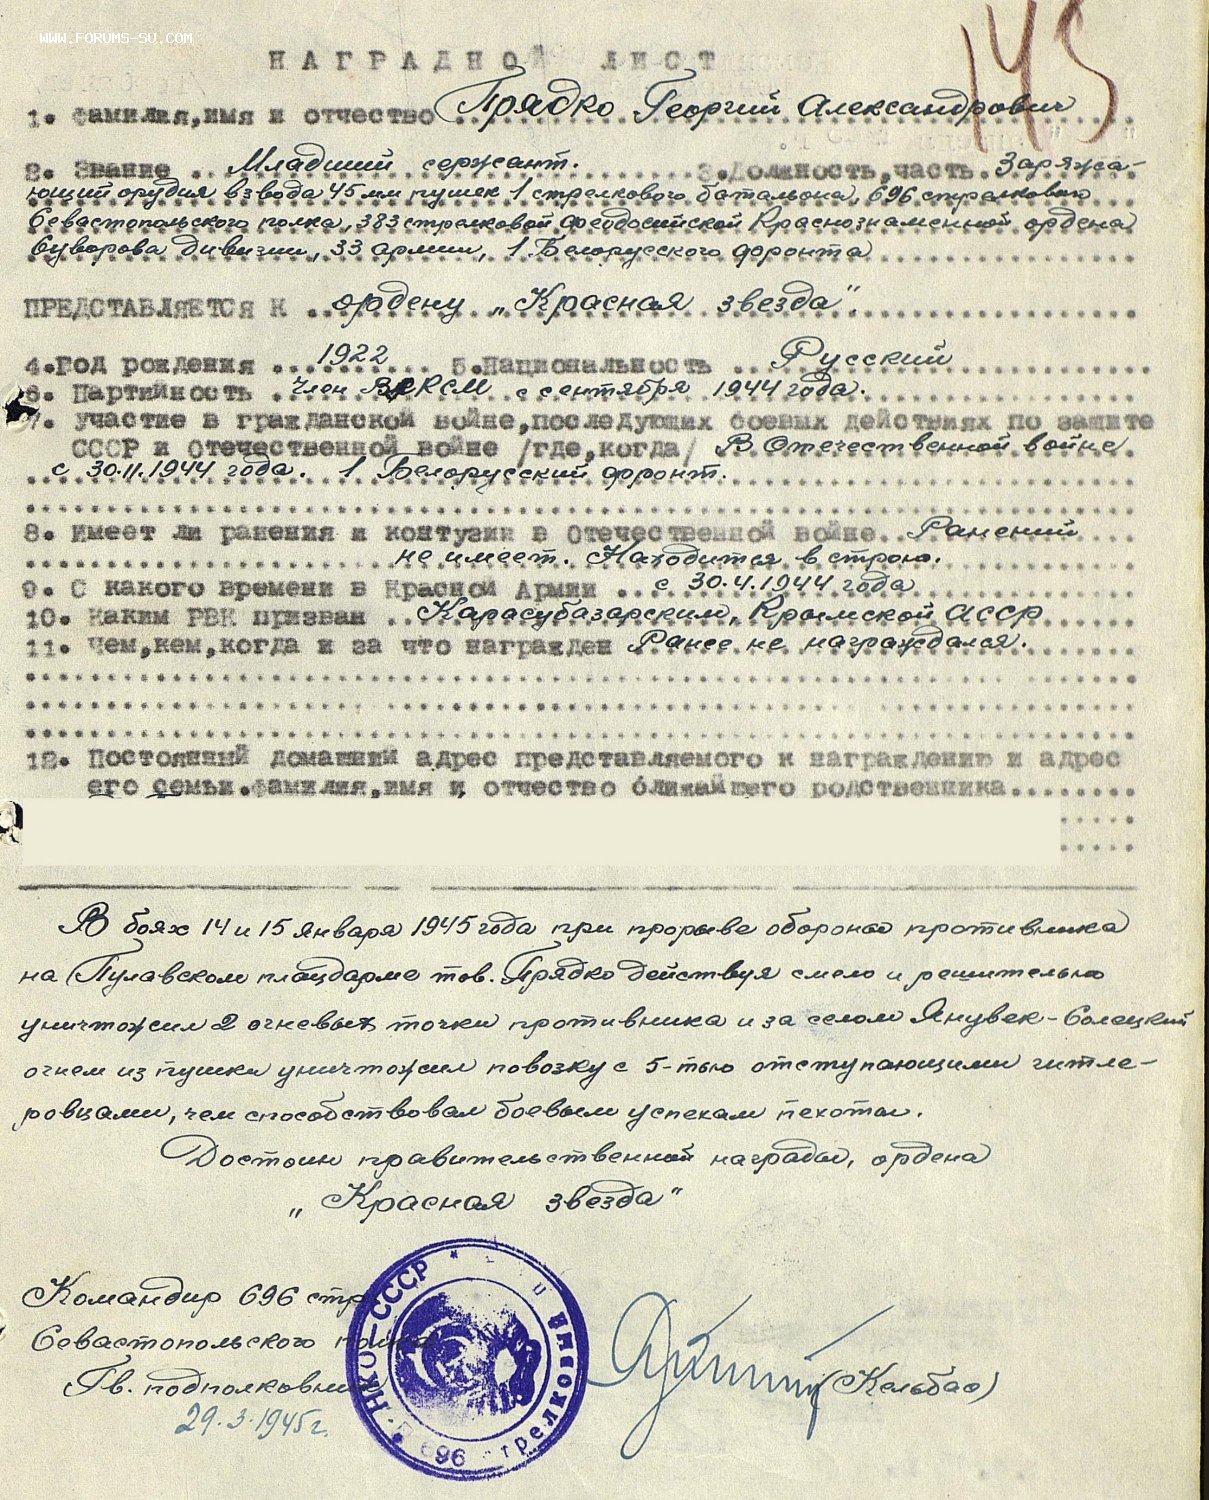 WWW.FORUMS-SU.COM
145
НАГРАДНОЙ ЛИСТ
1. Фамилия,имя и отчество Прядко Георгий Александрович
2. Звание Младший сержант. 3.Должность,часть Заряжа-
ющий орудия взвода 45 мм пушек 1 стрелкового батальона, 696 стрелкового
Севастопольского полка, 383 стрелковой Феодосийской Краснознаменной ордена
Суворова дивизии, 33 армии, 1 Белорусского фронта
ПРЕДСТАВЛЯЕТСЯ К ордену „Красная звезда".
4.Год рождения 1922 5.Национальность Русский
6. Партийность Член ВЛКСМ с сентября 1944 года.
7. Участие в гражданской войне,последующих боевых действиях по защите
СССР и Отечественной войне /где,когда/ В Отечественной войне
с 30.11.1944 года. 1 Белорусский фронт.
8. Имеет ли ранения и контузии в Отечественной войне Ранений
не имеет. Находится в строю.
9. С какого времени в Красной Армии с 30.4.1944 года
10. Каким РВК призван Карасубазарским, Крымской АССР
11. Чем,кем,когда и за что награжден Ранее не награждался.
12. Постоянный домашний адрес представляемого к награждению и адрес
его семьи.Фамилия,имя и отчество ближайшего родственника
В боях 14 и 15 января 1945 года при прорыве обороны противника
на Пулавском плацдарме тов. Прядко действуя смело и решительно
уничтожил 2 огневых точки противника и за селом Янувек-Солецкий
огнем из пушки уничтожил повозку с 5-тью отступающими гитле-
ровцами, чем способствовал боевым успехам пехоты.
Достоин правительственной награды, ордена
„Красная звезда"
Командир 696 стр.
Севастопольского полка
Гв. подполковник (Кельбас)
29.3.1945г.
НКО-СССР
696 стрелковый